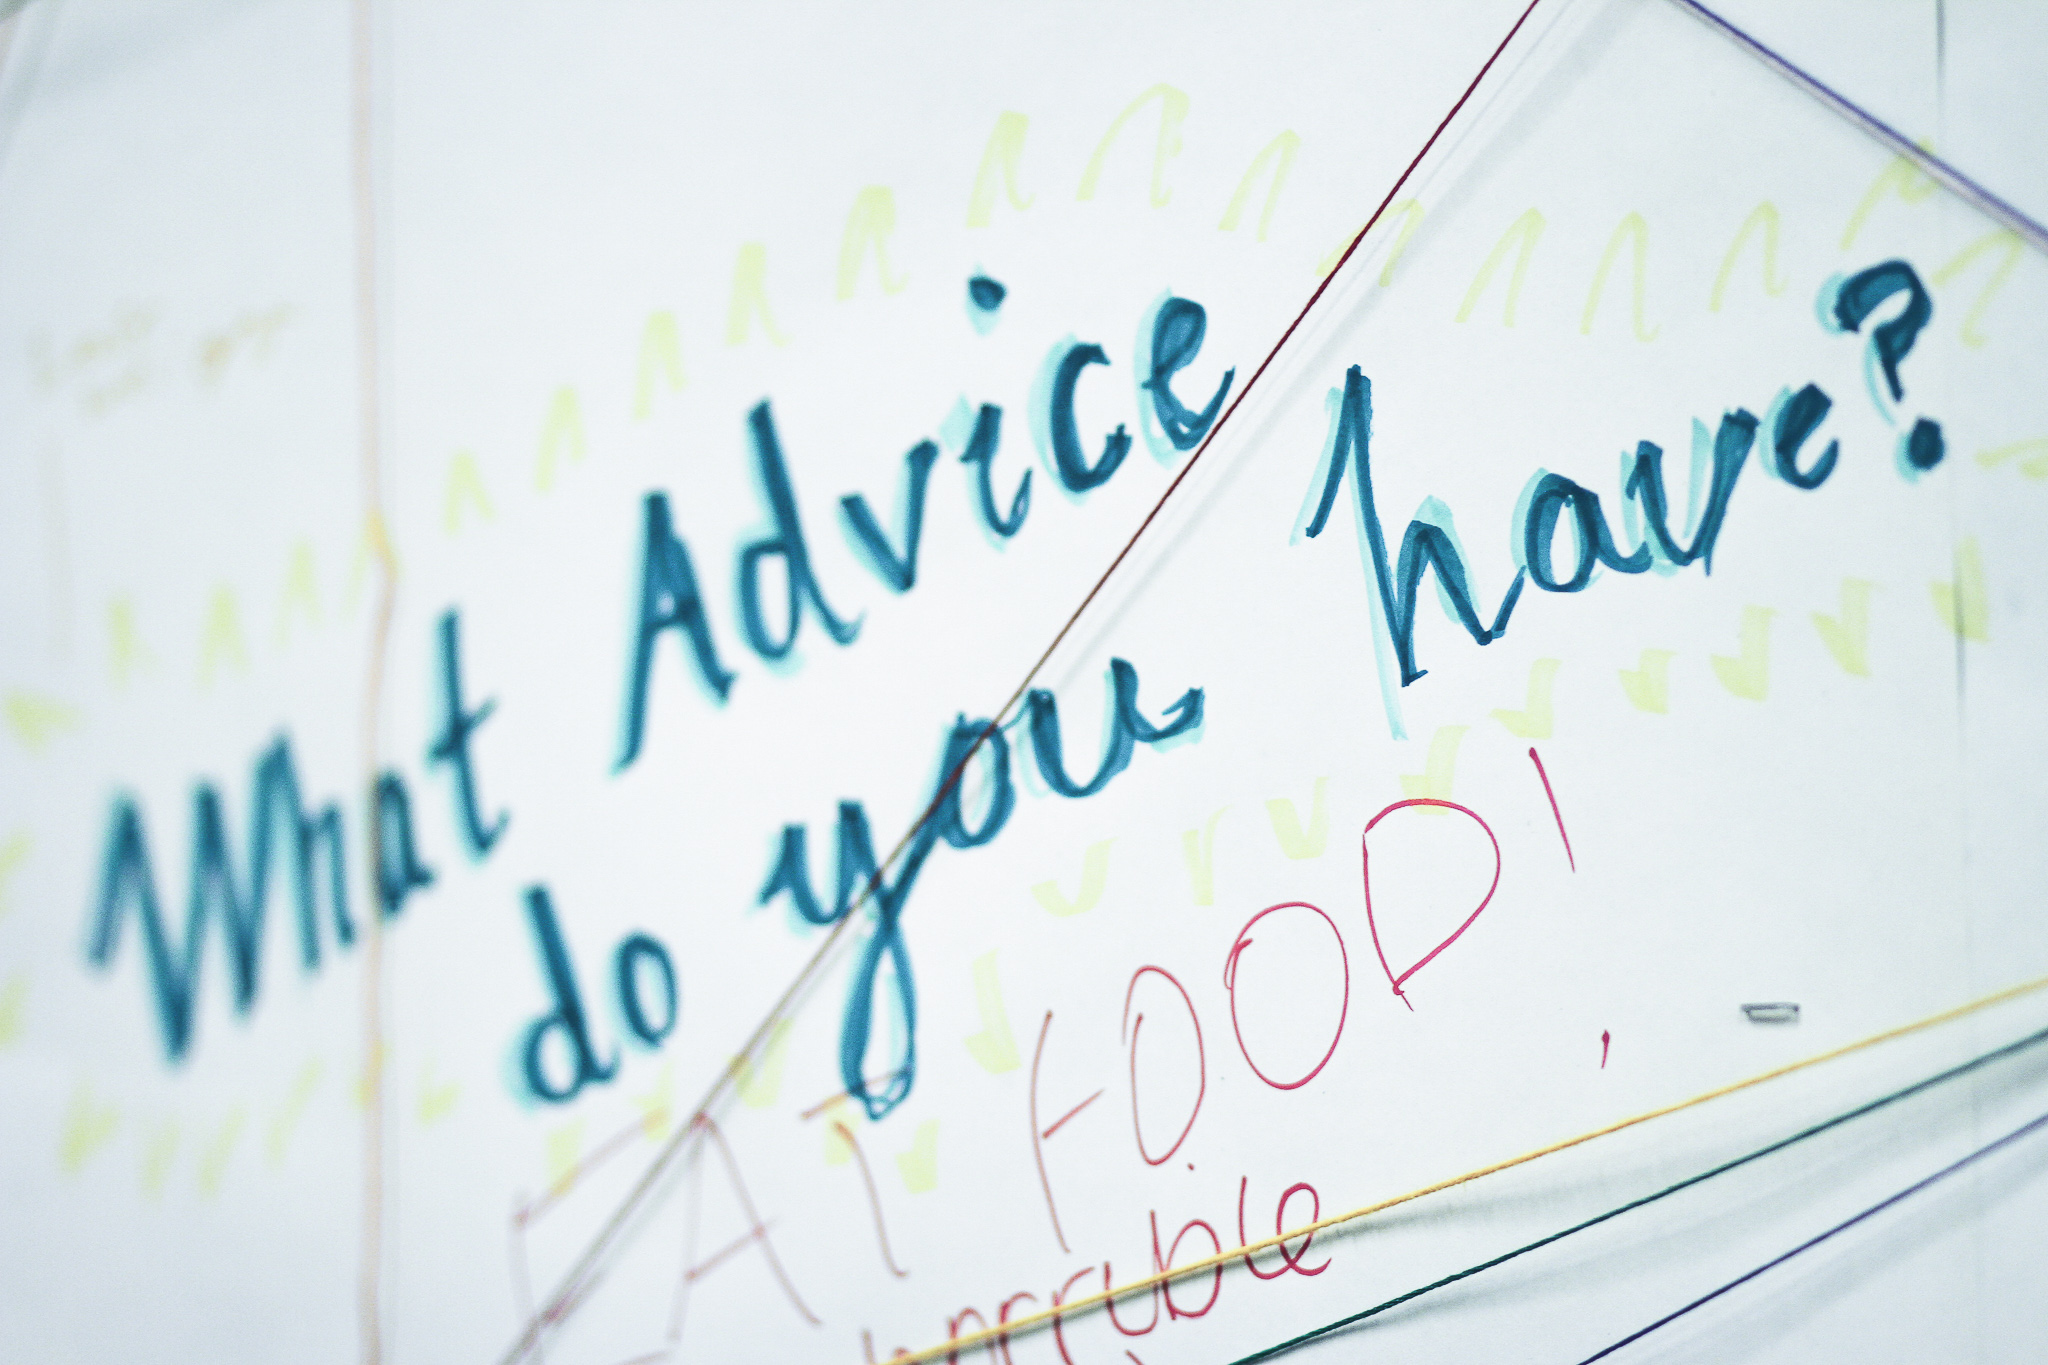 What Advice
do you have?
EAT FOOD!